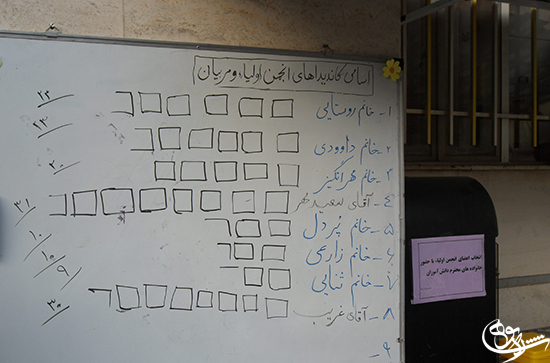 اسامی کاندیداهای انجمن اولیاء و مربیان
۱- خانم روستایی ۲۳
۲- خانم داوودی ۲۳
۳- خانم مهرانگیز ۲۰
۴- آقای سعیدمهر ۳۱
۵- خانم پُردل ۱۰
۶- خانم زارعی ۱۰
۷- خانم ثنایی ۹
۸- آقای غریب ۳۰
۹
انتخاب اعضای انجمن اولیاء با حضور
خانواده های محترم دانش آموزان